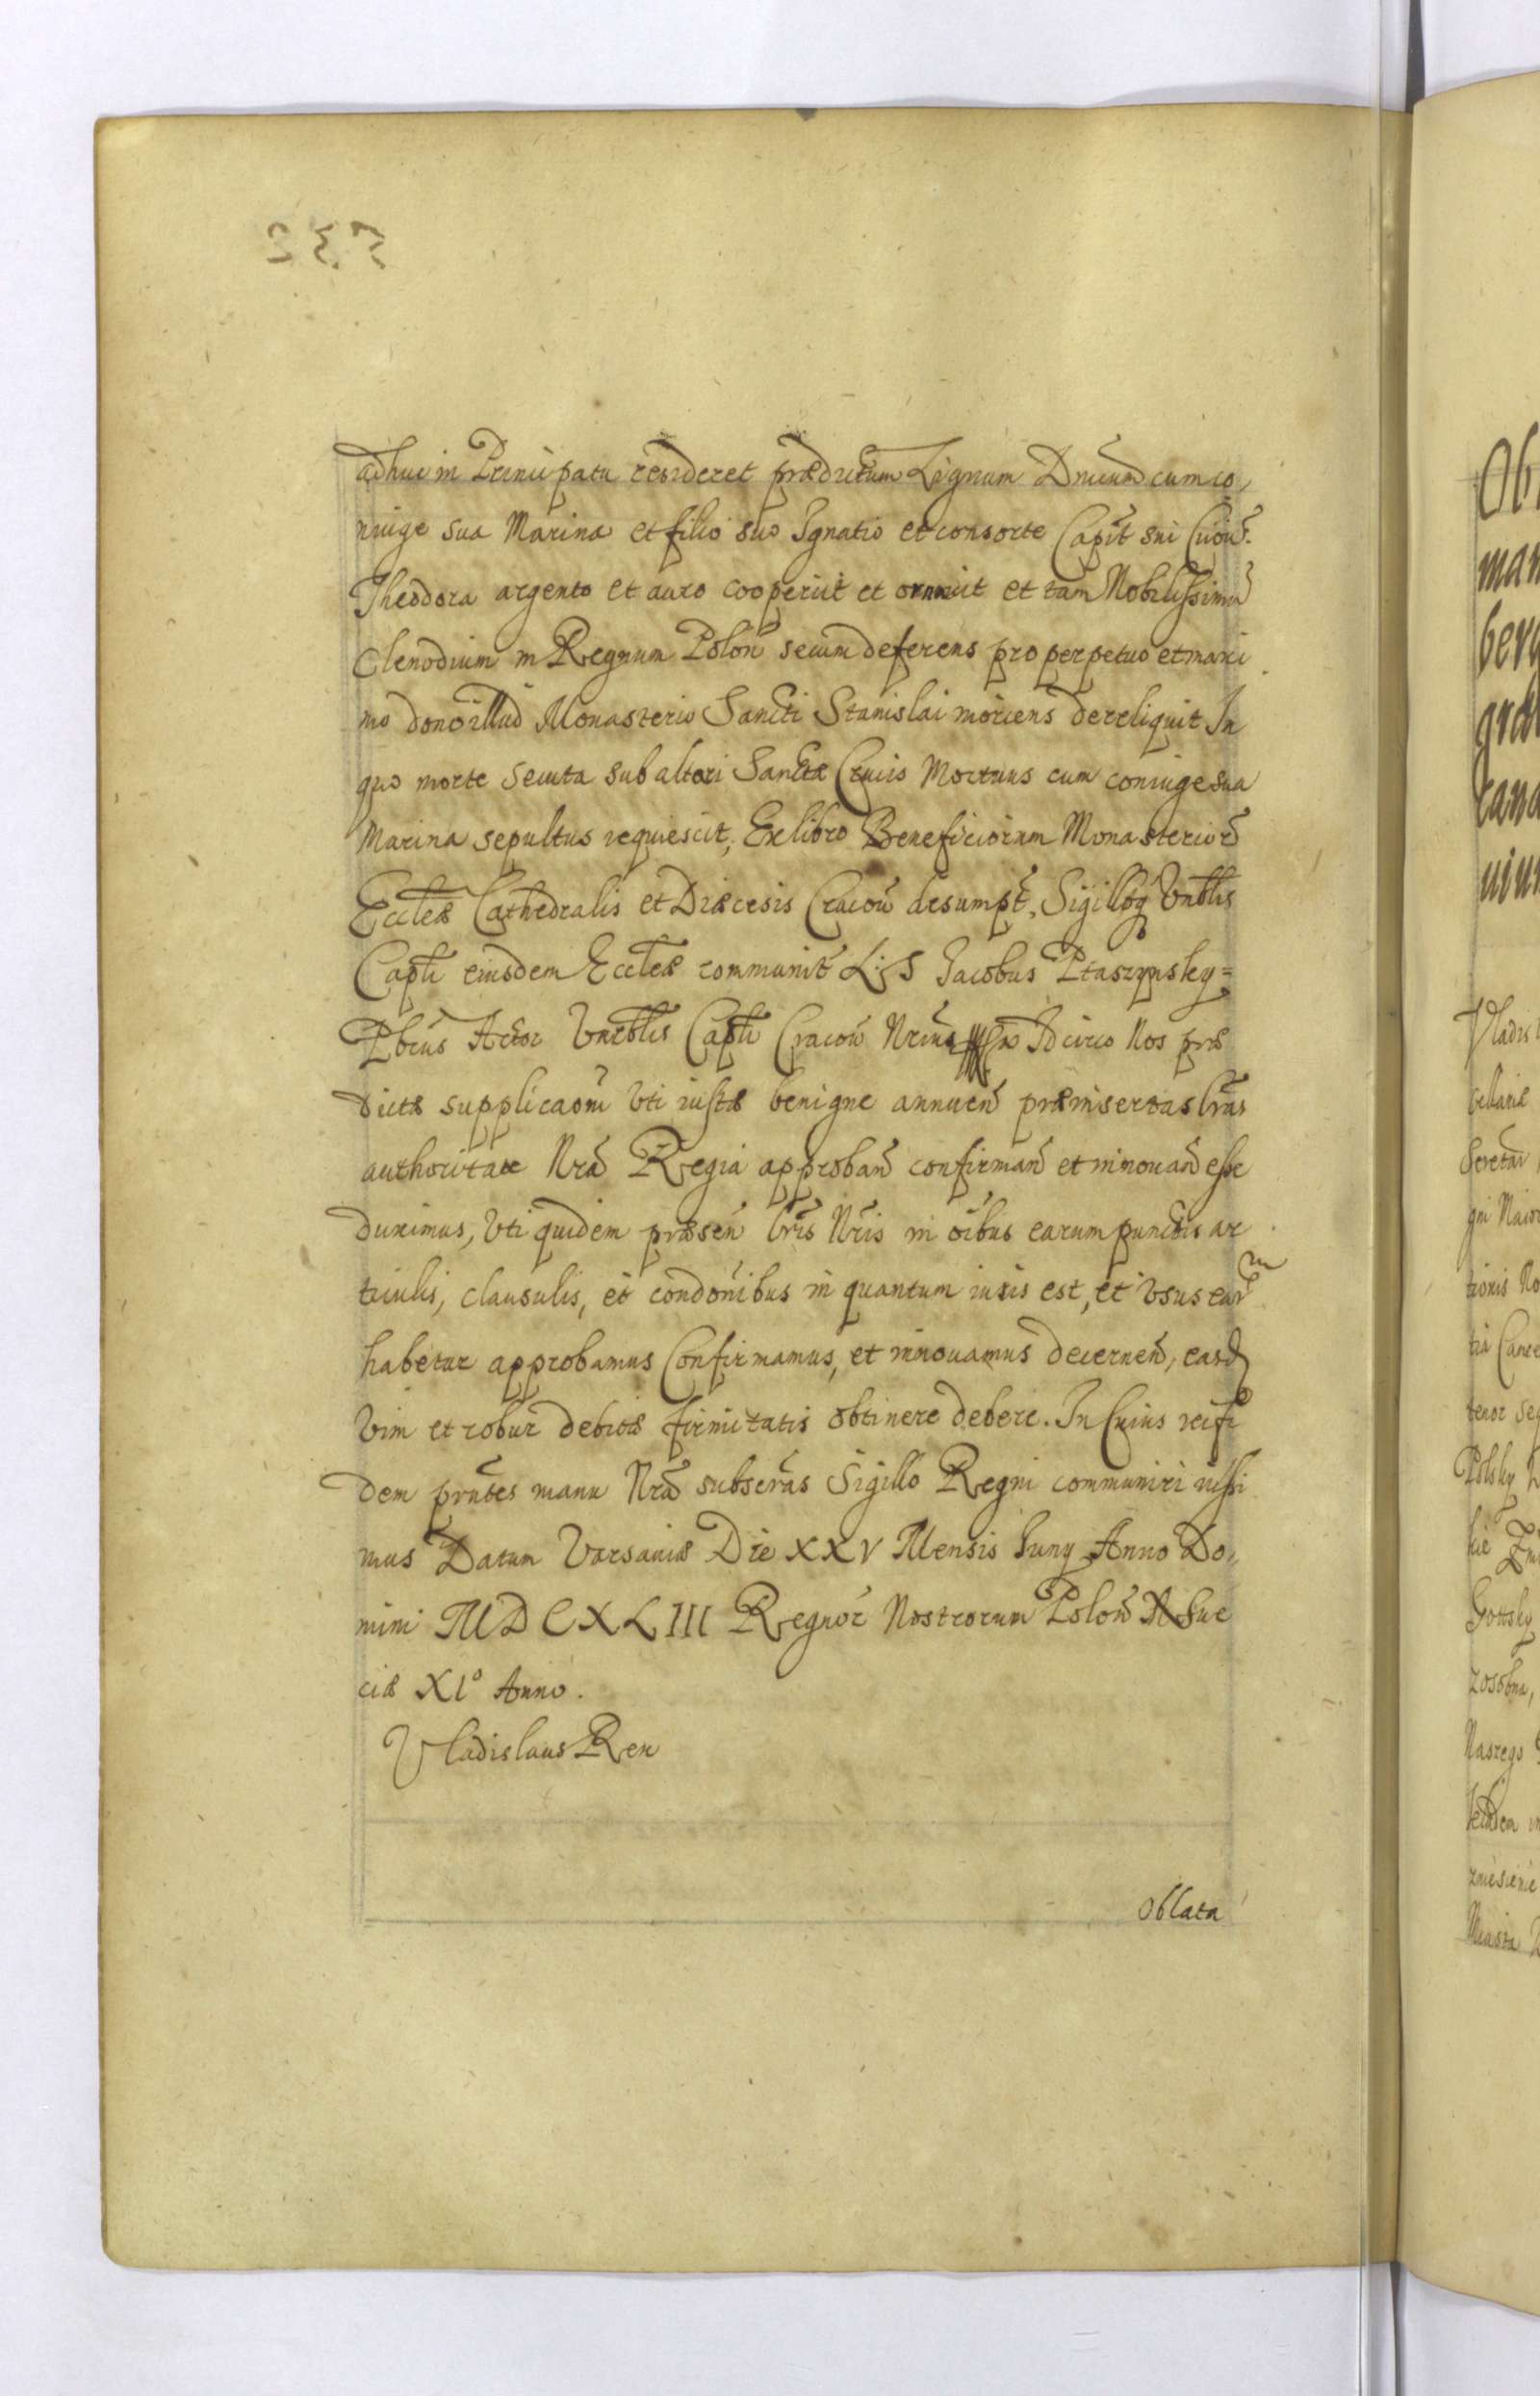 adhuc in Principatu resideret prædictum Lignum Dnicum cum co,
niuge sua Marina et filio suo Ignatio et consorte Capit sni Ciiou.
Theodora argento et auro cooperuit et ornauit et tam Nobilissimu
Clenodium in Regnum Polon secum deferens pro perpetuo et maxi
mo dono illud Monasterio Sancti Stanislai moriens dereliquit In
quo morte secuta sub altari Sanctæ Crucis Mortuus cum coniuge sua
Marina sepultus requiescit, Ex libro Beneficiorum Monasterior
Eccleæ Cathedralis et Diæcesis Cracou desumpt, Sigilloq Vnblis
Capli eiusdem Eccleæ communit L: S Jacobus Ptaszynsky=
Pbrus Actor Vnrblis Capli Cracou Idcirco Nos præ
dictæ supplicaoni Vti iustæ benigne annuen præinsertas lras
authoritate Nra Regia approband confirmand et innouand esse
duximus, Vti quidem præsen lris Nris in oibus earum punctis ar
ticulis, clausulis, et condonibus in quantum iuris est, et Vsus ear
habetur approbamus Confirmamus, et innouamus decernen, easd
Vim et robur debitæ firmitatis obtinere debere. In Cuius rei fi
dem prntes manu Nra subscras Sigillo Regni communiri iussi
mus Datum Varsauiæ Die XXV Mensis Iuny Anno Do,
mini MDCXLIII Regnor Nostrorum Polon Sue
ciæ XIº Anno.
Vladislaus Rex
Oblata